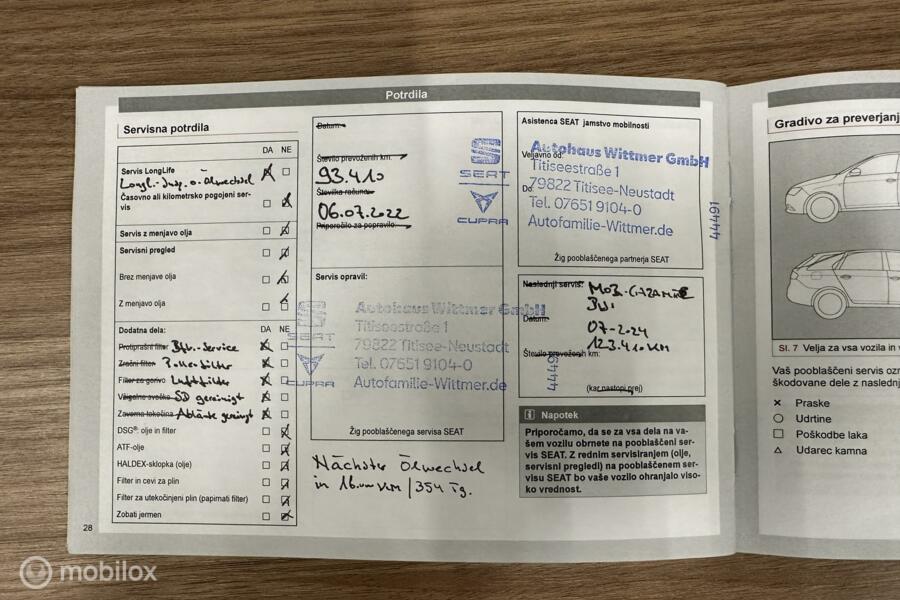 Potrdila
Servisna potrdila
DA NE
Servis LongLife
Longl.-Insp. o. Ölwechsel
Časovno ali kilometrsko pogojeni ser-
vis
Servis z menjavo olja
Servisni pregled
Brez menjave olja
Z menjavo olja
Dodatna dela: DA NE
Protiprašni filter
Zračni filter Pollenfilter
Filter za gorivo Luftfilter
Vžigalne svečke SD gereinigt
Zavorna tekočina Abläufe gereinigt
DSG®: olje in filter
ATF-olje
HALDEX-sklopka (olje)
Filter in cevi za plin
Filter za utekočinjeni plin (papirnati filter)
Zobati jermen
28
Datum
Število prevoženih km:
93.410
Številka računa:
06.07.2022
Priporočilo za popravilo:
SEAT
CUPRA
Servis opravil:
Autohaus Wittmer GmbH
Titiseestraße 1
79822 Titisee-Neustadt
Tel. 07651 9104-0
Autofamilie-Wittmer.de
SEAT
CUPRA
44491
Žig pooblaščenega servisa SEAT
Nächster Ölwechsel
in 16.000 KM / 354 Tg.
Asistenca SEAT jamstvo mobilnosti
Veljavno od:
Do:
Autohaus Wittmer GmbH
Titiseestraße 1
79822 Titisee-Neustadt
Tel. 07651 9104-0
Autofamilie-Wittmer.de
44491
Žig pooblaščenega partnerja SEAT
Naslednji servis:
Datum:
07-2024
123.410 KM
Število prevoženih km:
(kar nastopi prej)
i Napotek
Priporočamo, da se za vsa dela na va-
šem vozilu obrnete na pooblaščeni ser-
vis SEAT. Z rednim servisiranjem (olje,
servisni pregledi) na pooblaščenem ser-
visu SEAT bo vaše vozilo ohranjalo viso-
ko vrednost.
Gradivo za preverjanj
Sl. 7 Velja za vsa vozila in v
Vaš pooblaščeni servis ozn
škodovane dele z naslednj
Praske
Udrtine
Poškodbe laka
Udarec kamna
mobilox